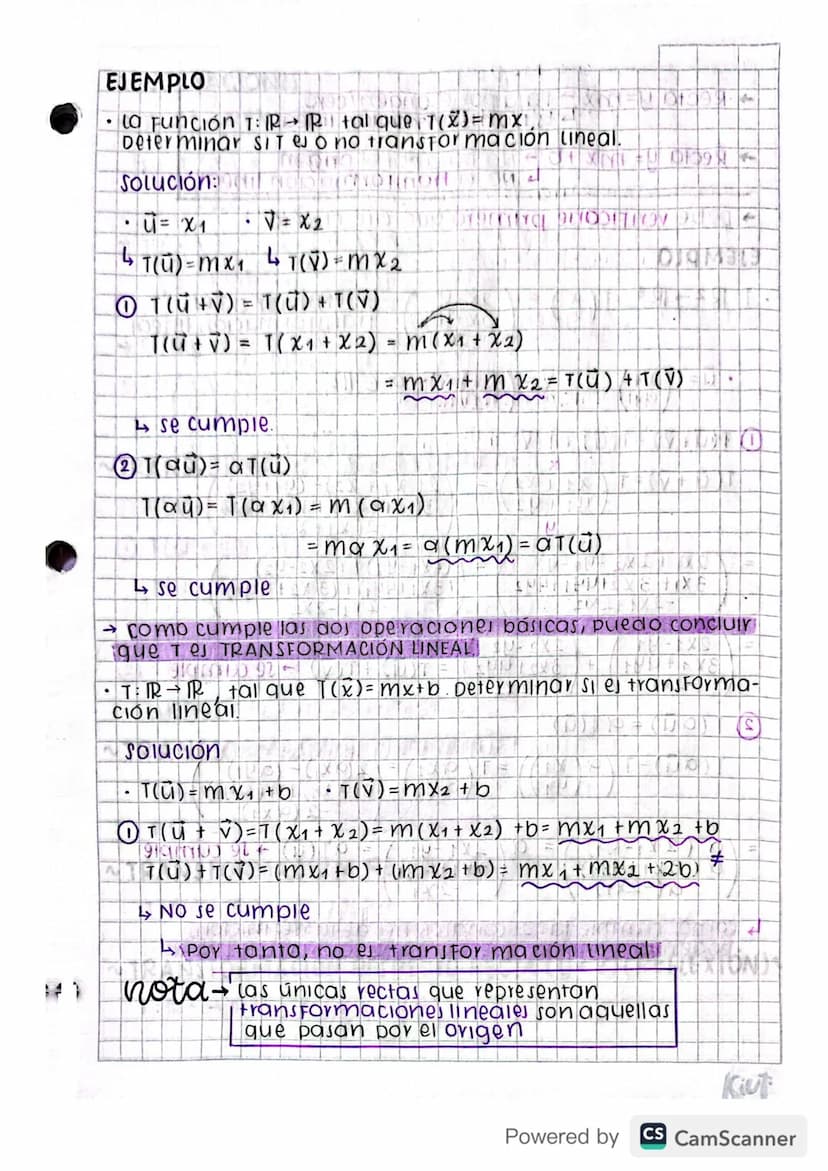 EJEMPLO
· La función T: ℝ → ℝ tal que T(x⃗) = mx
Determinar si T es o no transformación lineal.
Solución:
· u⃗ = x₁ · v⃗ = x₂
↳ T(u⃗) = mx₁ ↳ T(v⃗) = mx₂
① T(u⃗ + v⃗) = T(u⃗) + T(v⃗)
T(u⃗ + v⃗) = T(x₁ + x₂) = m(x₁ + x₂)
= mx₁ + mx₂ = T(u⃗) + T(v⃗)
↳ se cumple.
② T(αu⃗) = αT(u⃗)
T(αu⃗) = T(αx₁) = m(αx₁)
= mαx₁ = α(mx₁) = αT(u⃗)
↳ se cumple
→ como cumple las dos operaciones básicas, puedo concluir
que T es TRANSFORMACIÓN LINEAL
· T: ℝ → ℝ, tal que T(x⃗) = mx+b. Determinar si es transforma-
ción lineal.
Solución
· T(u⃗) = mx₁ + b · T(v⃗) = mx₂ + b
① T(u⃗ + v⃗) = T(x₁ + x₂) = m(x₁ + x₂) + b = mx₁ + mx₂ + b
≠
T(u⃗) + T(v⃗) = (mx₁ + b) + (mx₂ + b) = mx₁ + mx₂ + 2b
↳ No se cumple
↳ Por tanto, no es transformación lineal
nota → Las únicas rectas que representan
transformaciones lineales son aquellas
que pasan por el origen
Powered by CS CamScanner